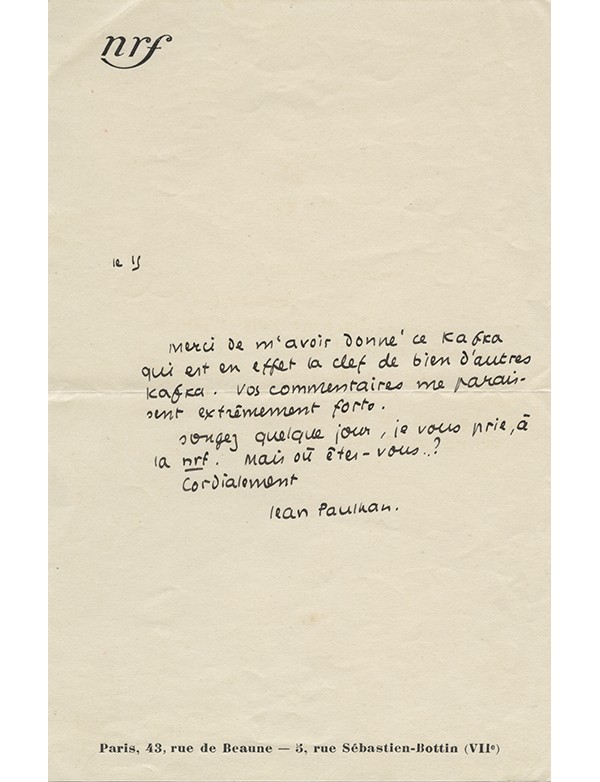 nrf
le 15
Merci de m'avoir donné ce Kafka
qui est en effet la clef de bien d'autres
Kafka. Vos commentaires me parais-
sent extrêmement forts.
songez quelque jour, je vous prie, à
la nrf. Mais où êtes-vous..?
Cordialement
Jean Paulhan.
Paris, 43, rue de Beaune — 5, rue Sébastien-Bottin (VIIᵉ)